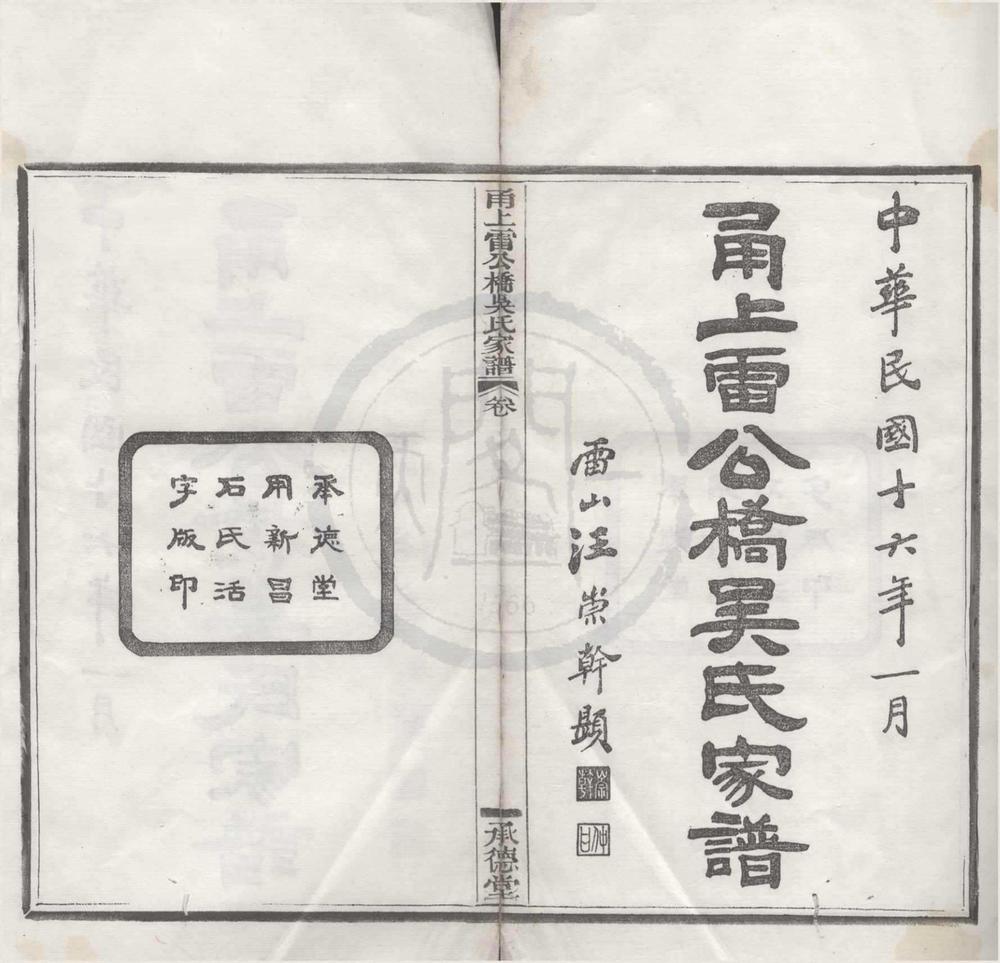 中華民國十六年一月
甬上雷公橋吳氏家譜
雷山汪崇幹題
崇幹
仲甘
甬上雷公橋吳氏家譜
卷
承德堂
承德堂
用新昌
石氏活
字版印